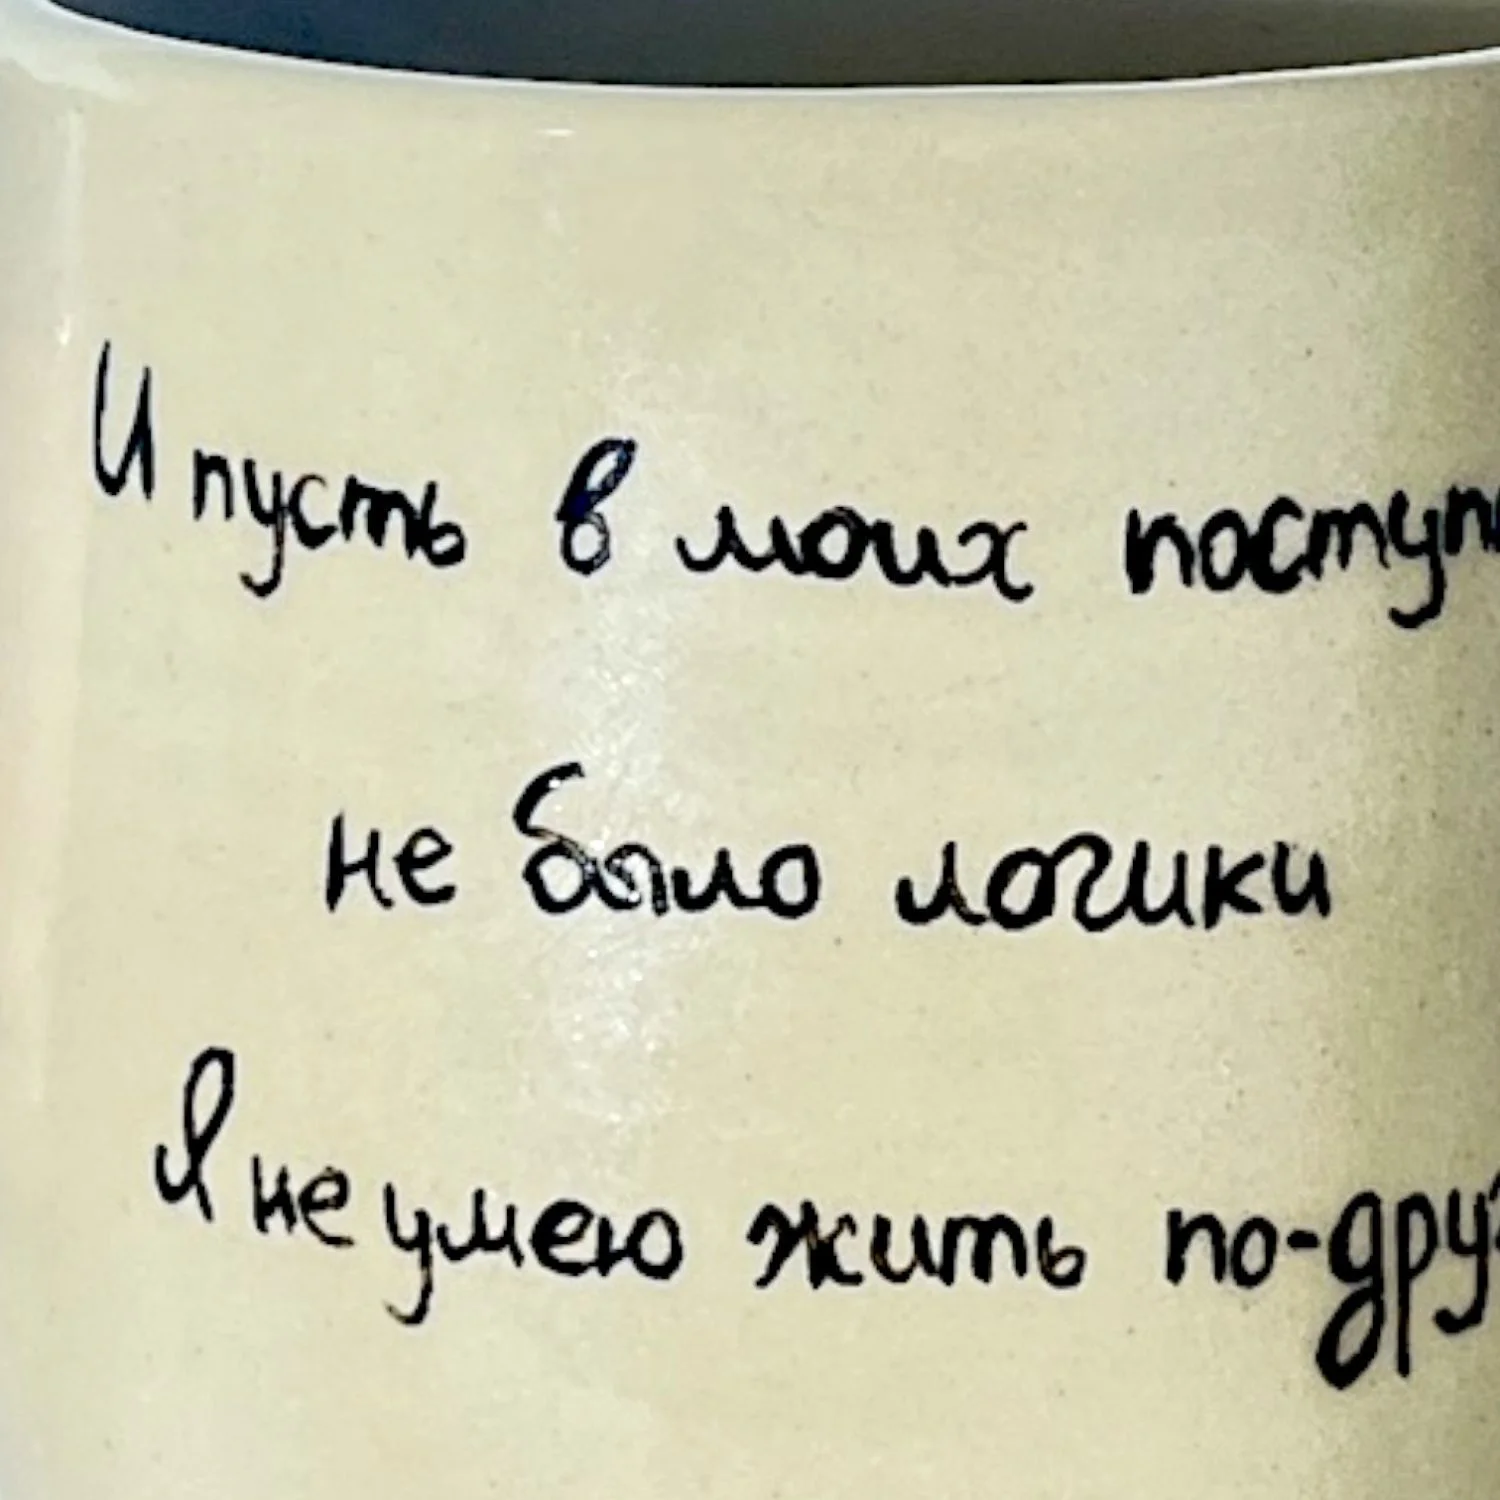 И пусть в моих поступ
не было логики
Я не умею жить по-друг